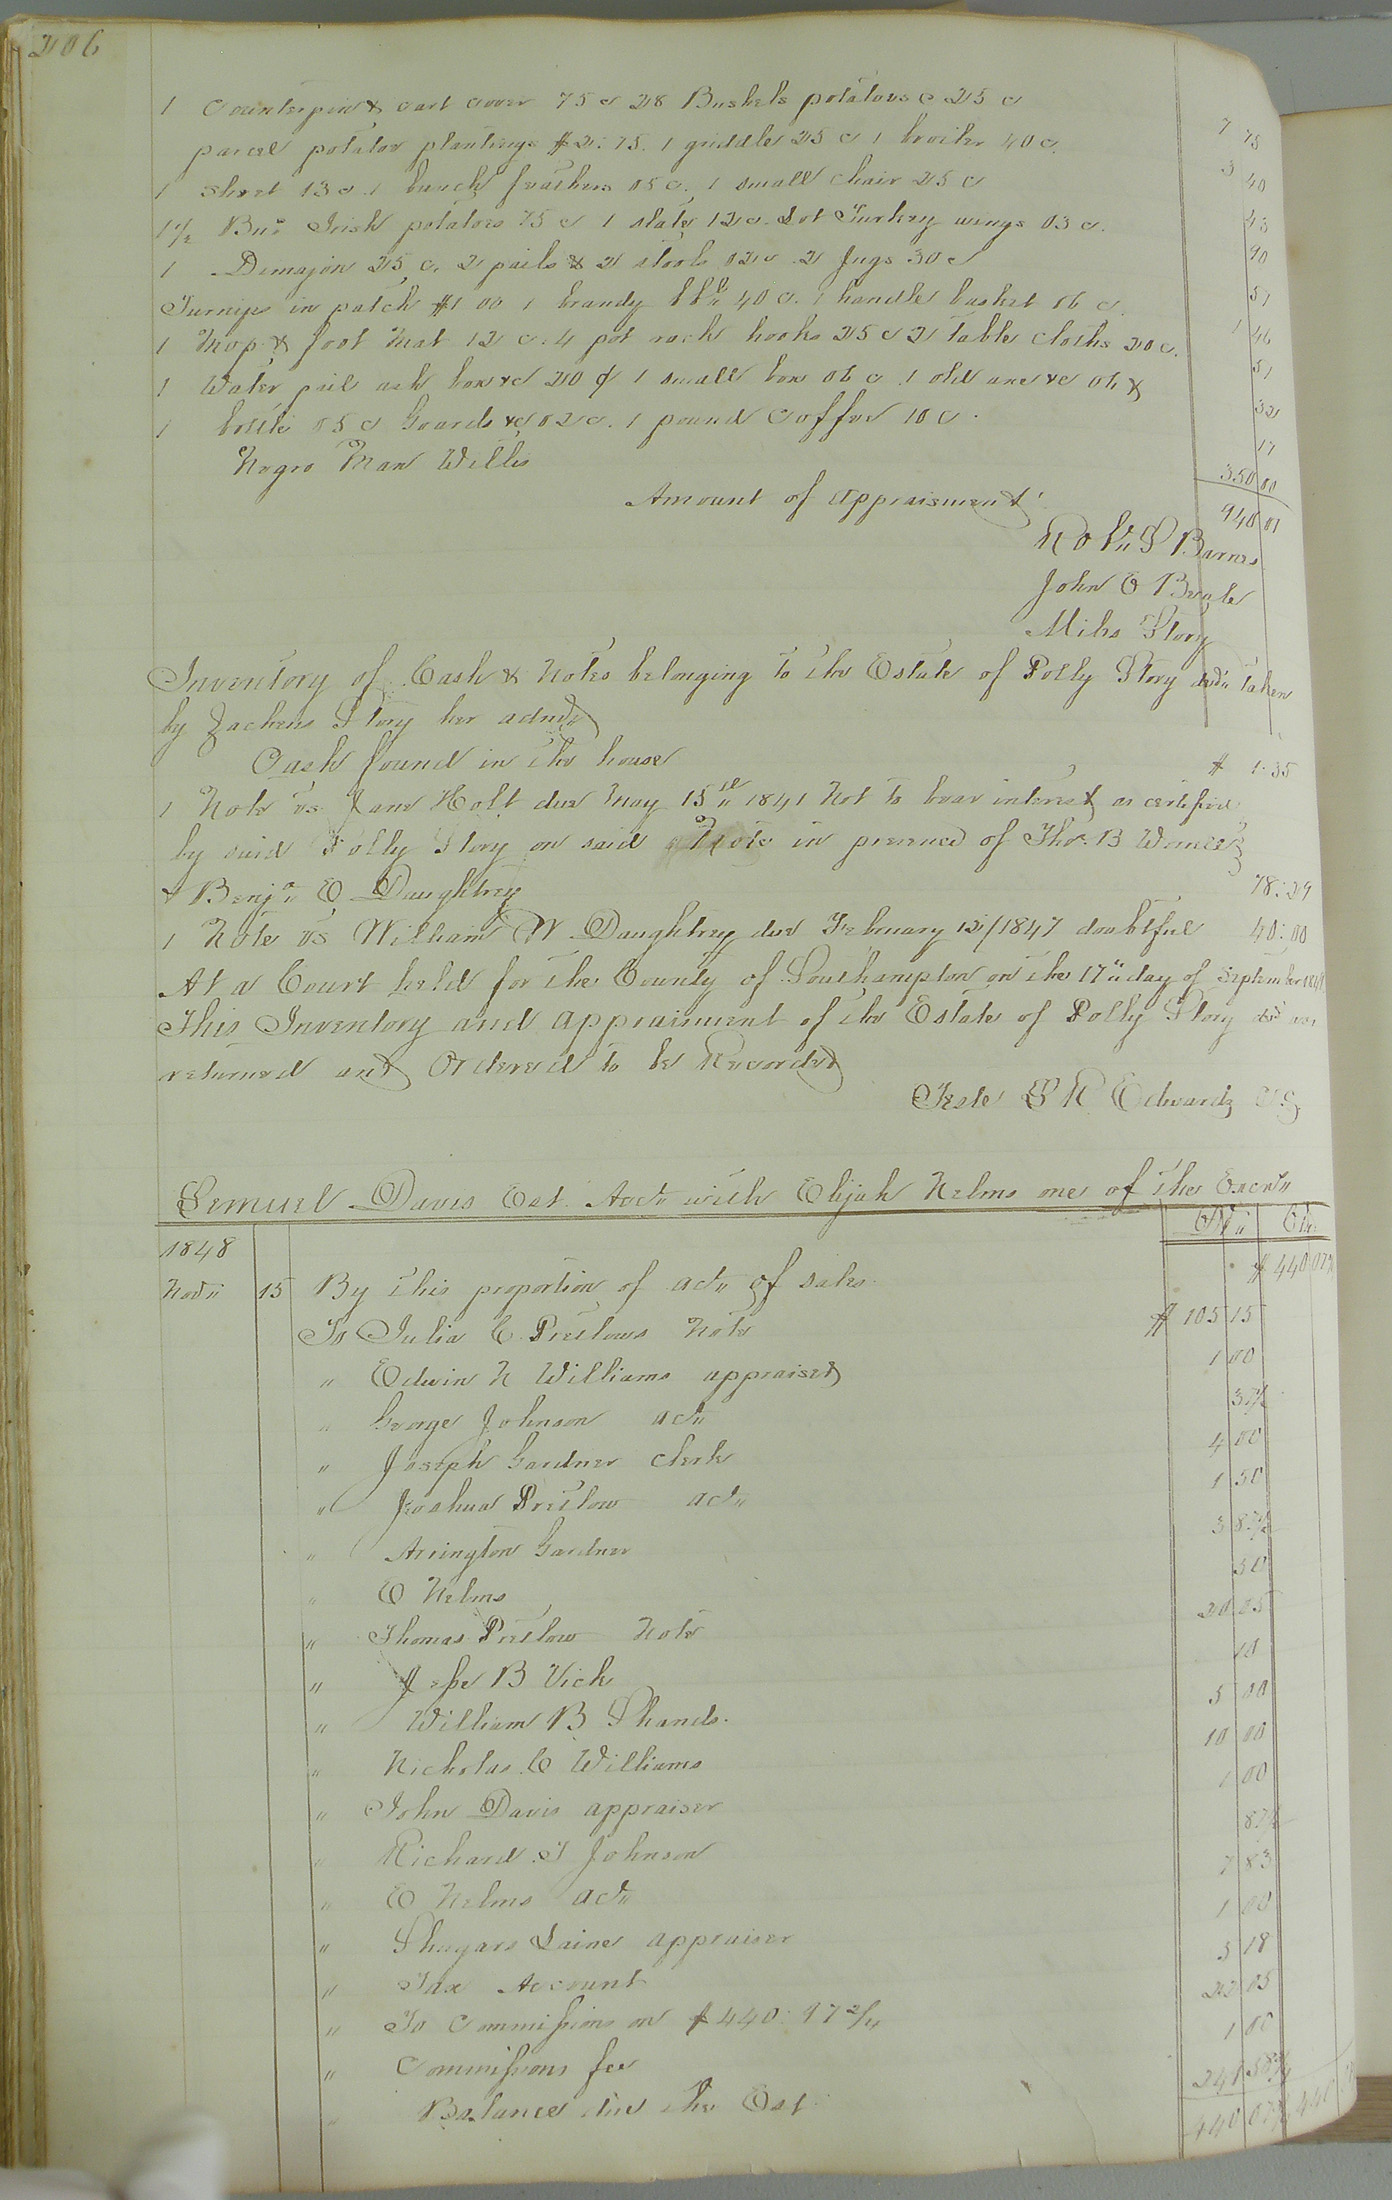 206
1 Counterpin & cart cover 75 c 28 Bushels potatoes @ 25 c 7 75
parcel potatoe plantings $2:75. 1 griddle 25 c 1 broiler 40 c. 3 40
1 Sheet 13 c. 1 bunch feathers 05 c. 1 small chair 25 c 43
1 1/2 Bus Irish potatoes 75 c 1 slate 12 c. Lot Turkey wings 03 c. 90
1 Demajon 25 c. 2 pails & 2 stools 02 c. 2 Jugs 30 c 57
Turnips in patch $1 00 1 brandy bbl 40 c. 1 handle basket 06 c. 1 46
1 Mop & foot Mat 12 c. 4 pot rack hooks 25 c 2 table cloths 20 c. 57
1 Water pail ash box &c 20 ¢ 1 small box 06 c. 1 old axe &c 06 & 32
1 bottle 05 c Gourds &c 02 c. 1 pound Coffee 10 c. 17
Negro Man Willis 350 00
Amount of Appraisment 940 01
Robt S Barnes
John E Beale
Miles Story
Inventory of Cash & Notes belonging to the Estate of Polly Story decd taken
by Zacheus Story her admr
Cash found in the house $ 1.35
1 Note vs Jane Holt due May 15th 1841 Not to bear interest as certified
by said Polly Story on said Note in presence of Thos. B Womble
& Benja E Daughtrey 78:29
1 Note vs William W Daughtrey due February 12/1847 doubtful 40:00
At a Court held for the County of Southampton on the 17th day of September 1849
This Inventory and appraisment of the Estate of Polly Story decd was
returned and Ordered to be Recorded
Teste L R Edwards C S C
Lemuel Davis Est. Acct with Elijah Helms one of the Exors
Dr Cr
1848
Nov 15 By this proportion of act of sales $ 440 07 3/4
To Julia C Pretlows Note $ 105 15
" Edwin N Williams appraiser 1 00
" George Johnson act 37 1/2
" Joseph Gardner Clerk 4 00
" Joshua Pretlow act 1 50
" Arrington Gardner 3 87 1/2
" E Helms 50
" Thomas Pretlow Note 20 05
" Jesse B Vick 10
" William B Shands. 5 00
" Nicholas C Williams 10 00
" John Davis appraiser 1 00
" Richard T Johnson 87 1/2
" E Helms act 7 83
" Shugars Laine appraiser 1 00
" Tax Account 3 18
" To Commissions on $440:97 3/4 22 05
" Commissions fee 1 00
" Balance due the Est. 241 58 3/4
440 07 3/4 440